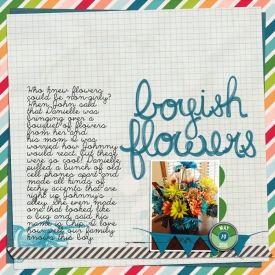 Who knew flowers
could be non-girly?
When John said
that Danielle was
bringing over a
bouquet of flowers
from her and
his mom I was
worried how Johnny
would react, but these
were so cool! Danielle
pulled a bunch of old
cell phones apart and
made all kinds of
techy accents that are
right up Johnny's
alley. She even made
one that looked like
a bug and said his
name is Chip. I love
how well our family
knows this boy.
boyish
flowers
MAY